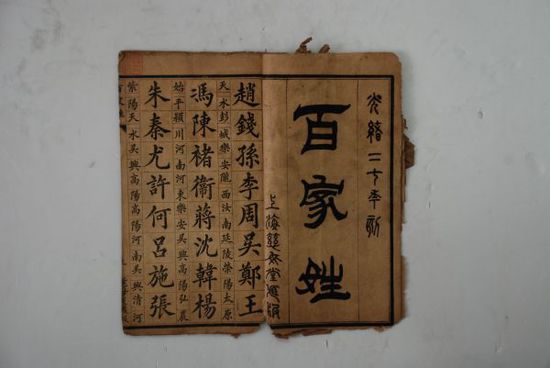 光緒二
年
百家姓
上海
趙錢孫李周吳鄭王
天水彭城樂安隴西汝南延陵滎陽太原
馮陳褚衞蔣沈韓楊
始平潁川河南河東樂安吳興高陽弘農
朱秦尤許何呂施張
紫陽天水吳興高陽高陽河南吳興清河